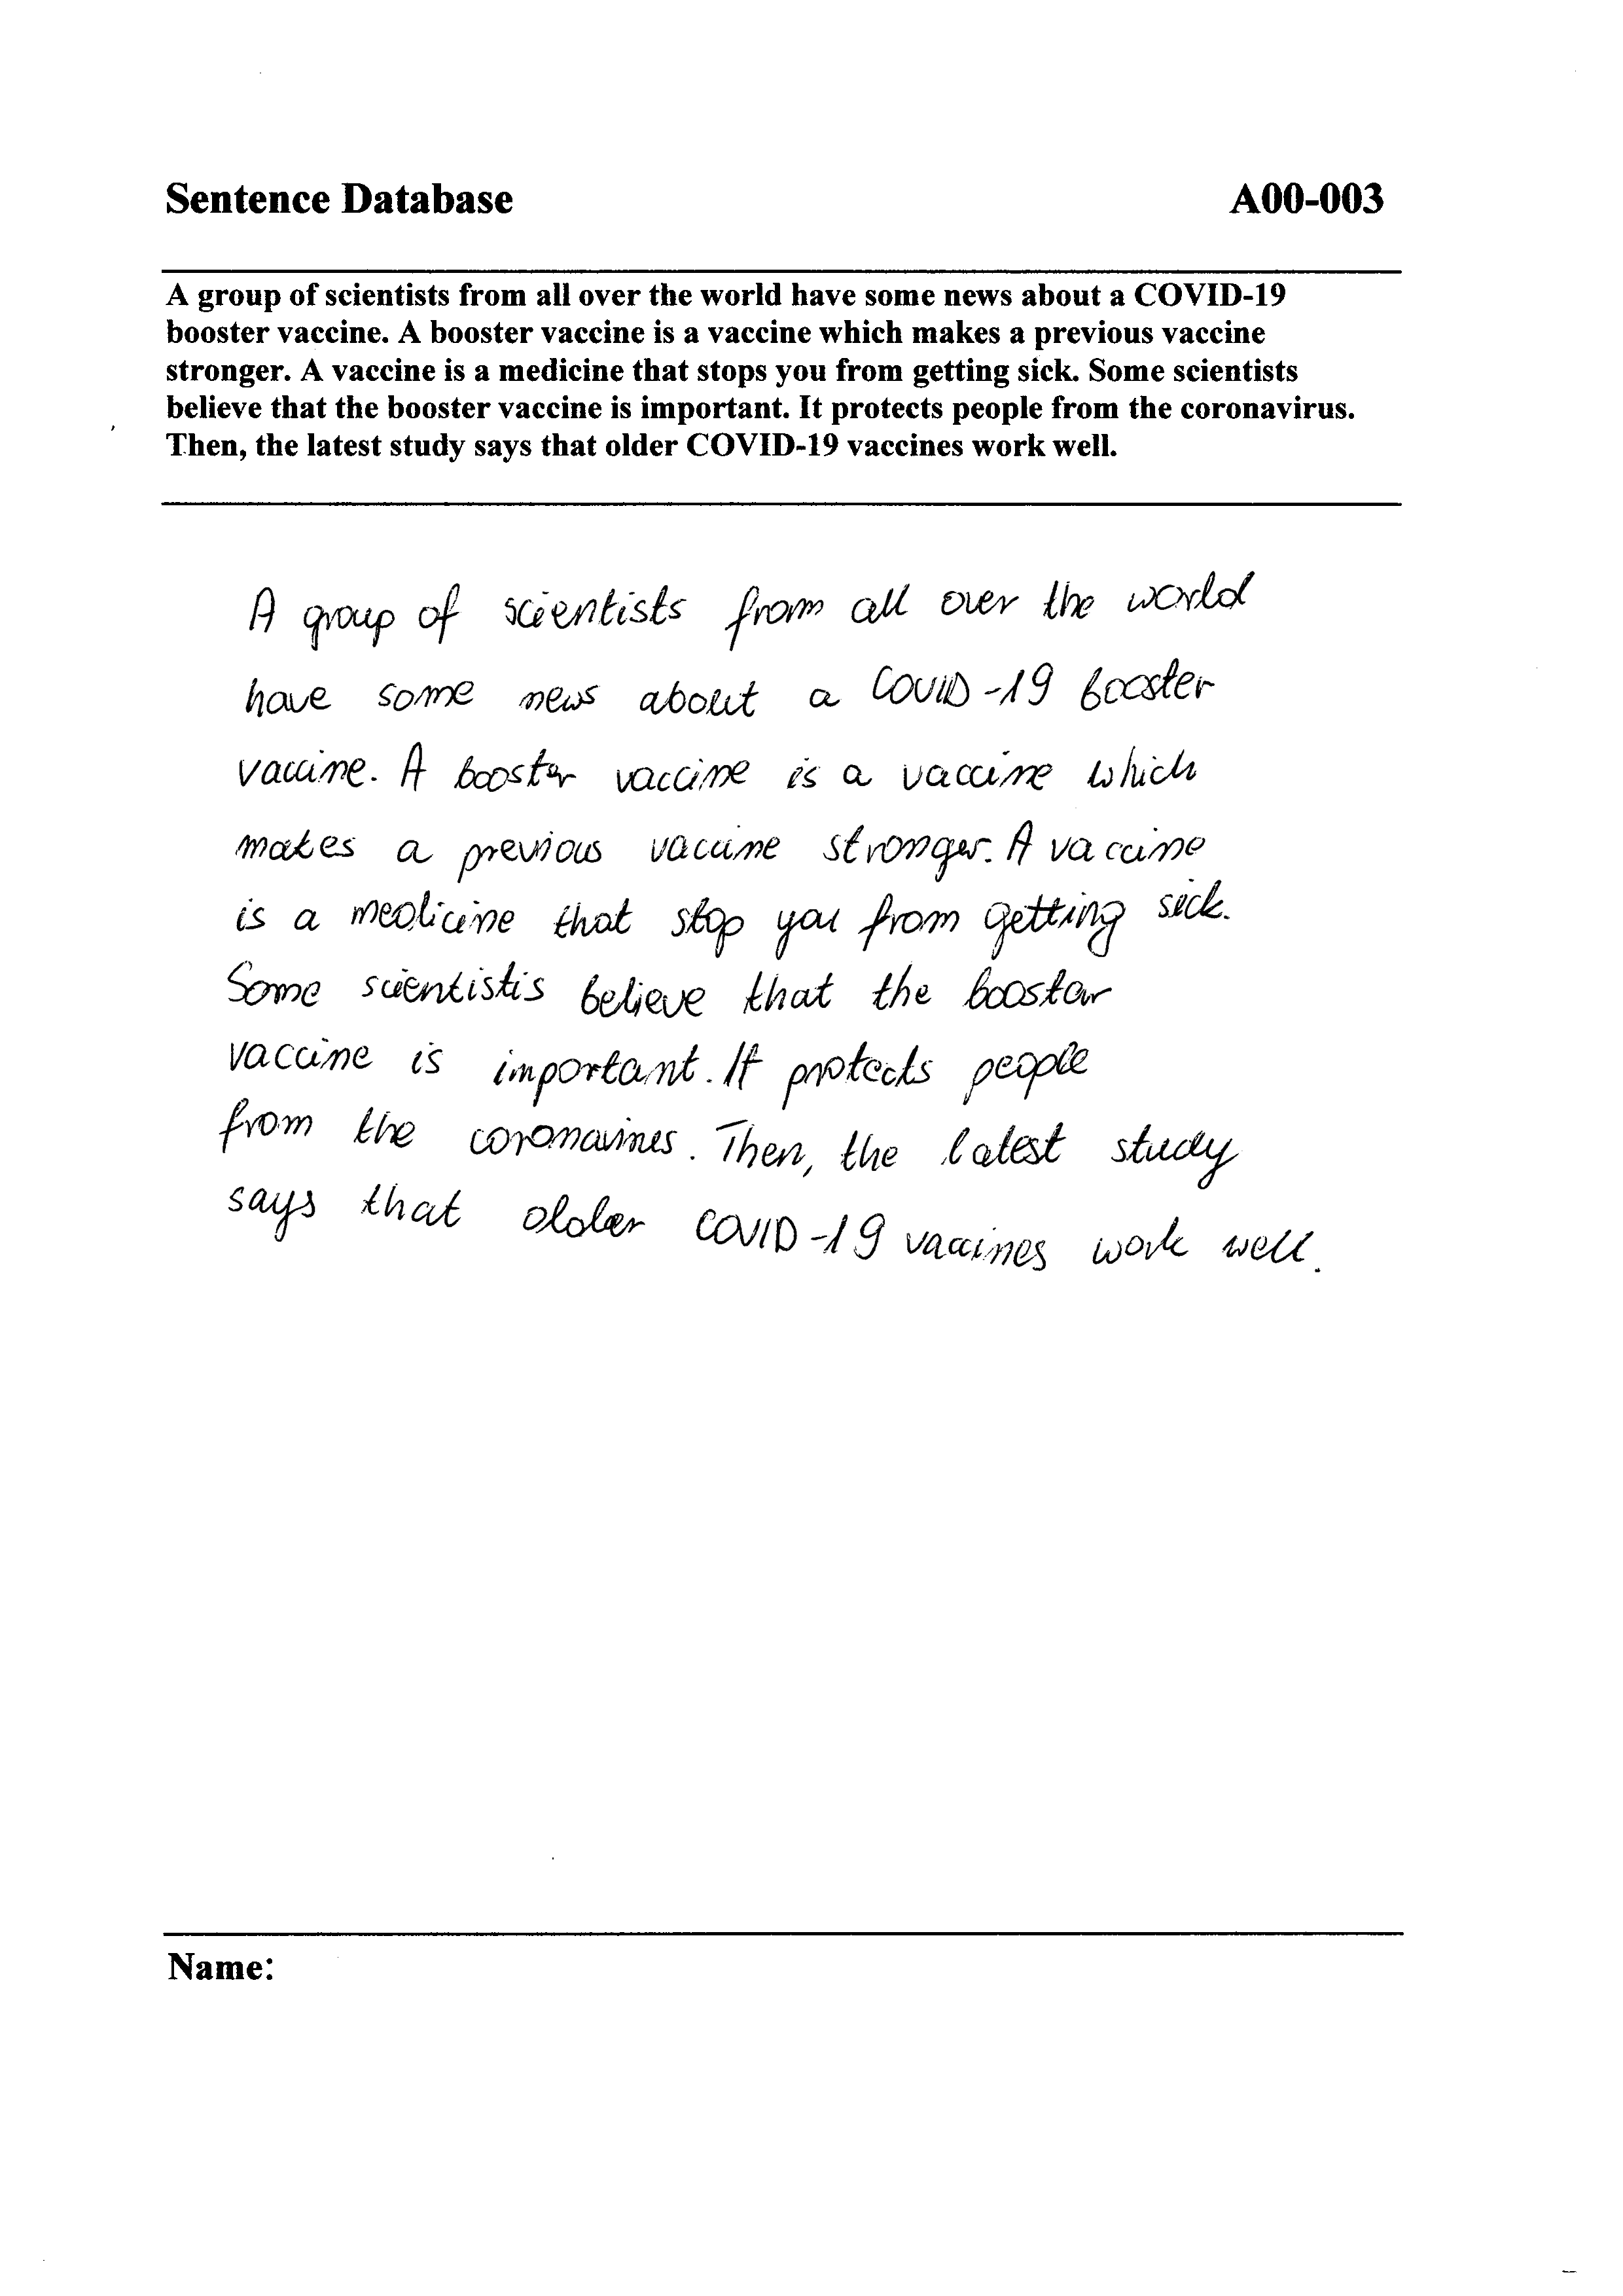 Sentence Database A00-003
A group of scientists from all over the world have some news about a COVID-19
booster vaccine. A booster vaccine is a vaccine which makes a previous vaccine
stronger. A vaccine is a medicine that stops you from getting sick. Some scientists
believe that the booster vaccine is important. It protects people from the coronavirus.
Then, the latest study says that older COVID-19 vaccines work well.
A group of scientists from all over the world
have some news about a COVID-19 booster
vaccine. A booster vaccine is a vaccine which
makes a previous vaccine stronger. A vaccine
is a medicine that stop you from getting sick.
Some scientistis believe that the booster
vaccine is important. It protects people
from the coronavirus. Then, the latest study
says that older COVID-19 vaccines work well.
Name: